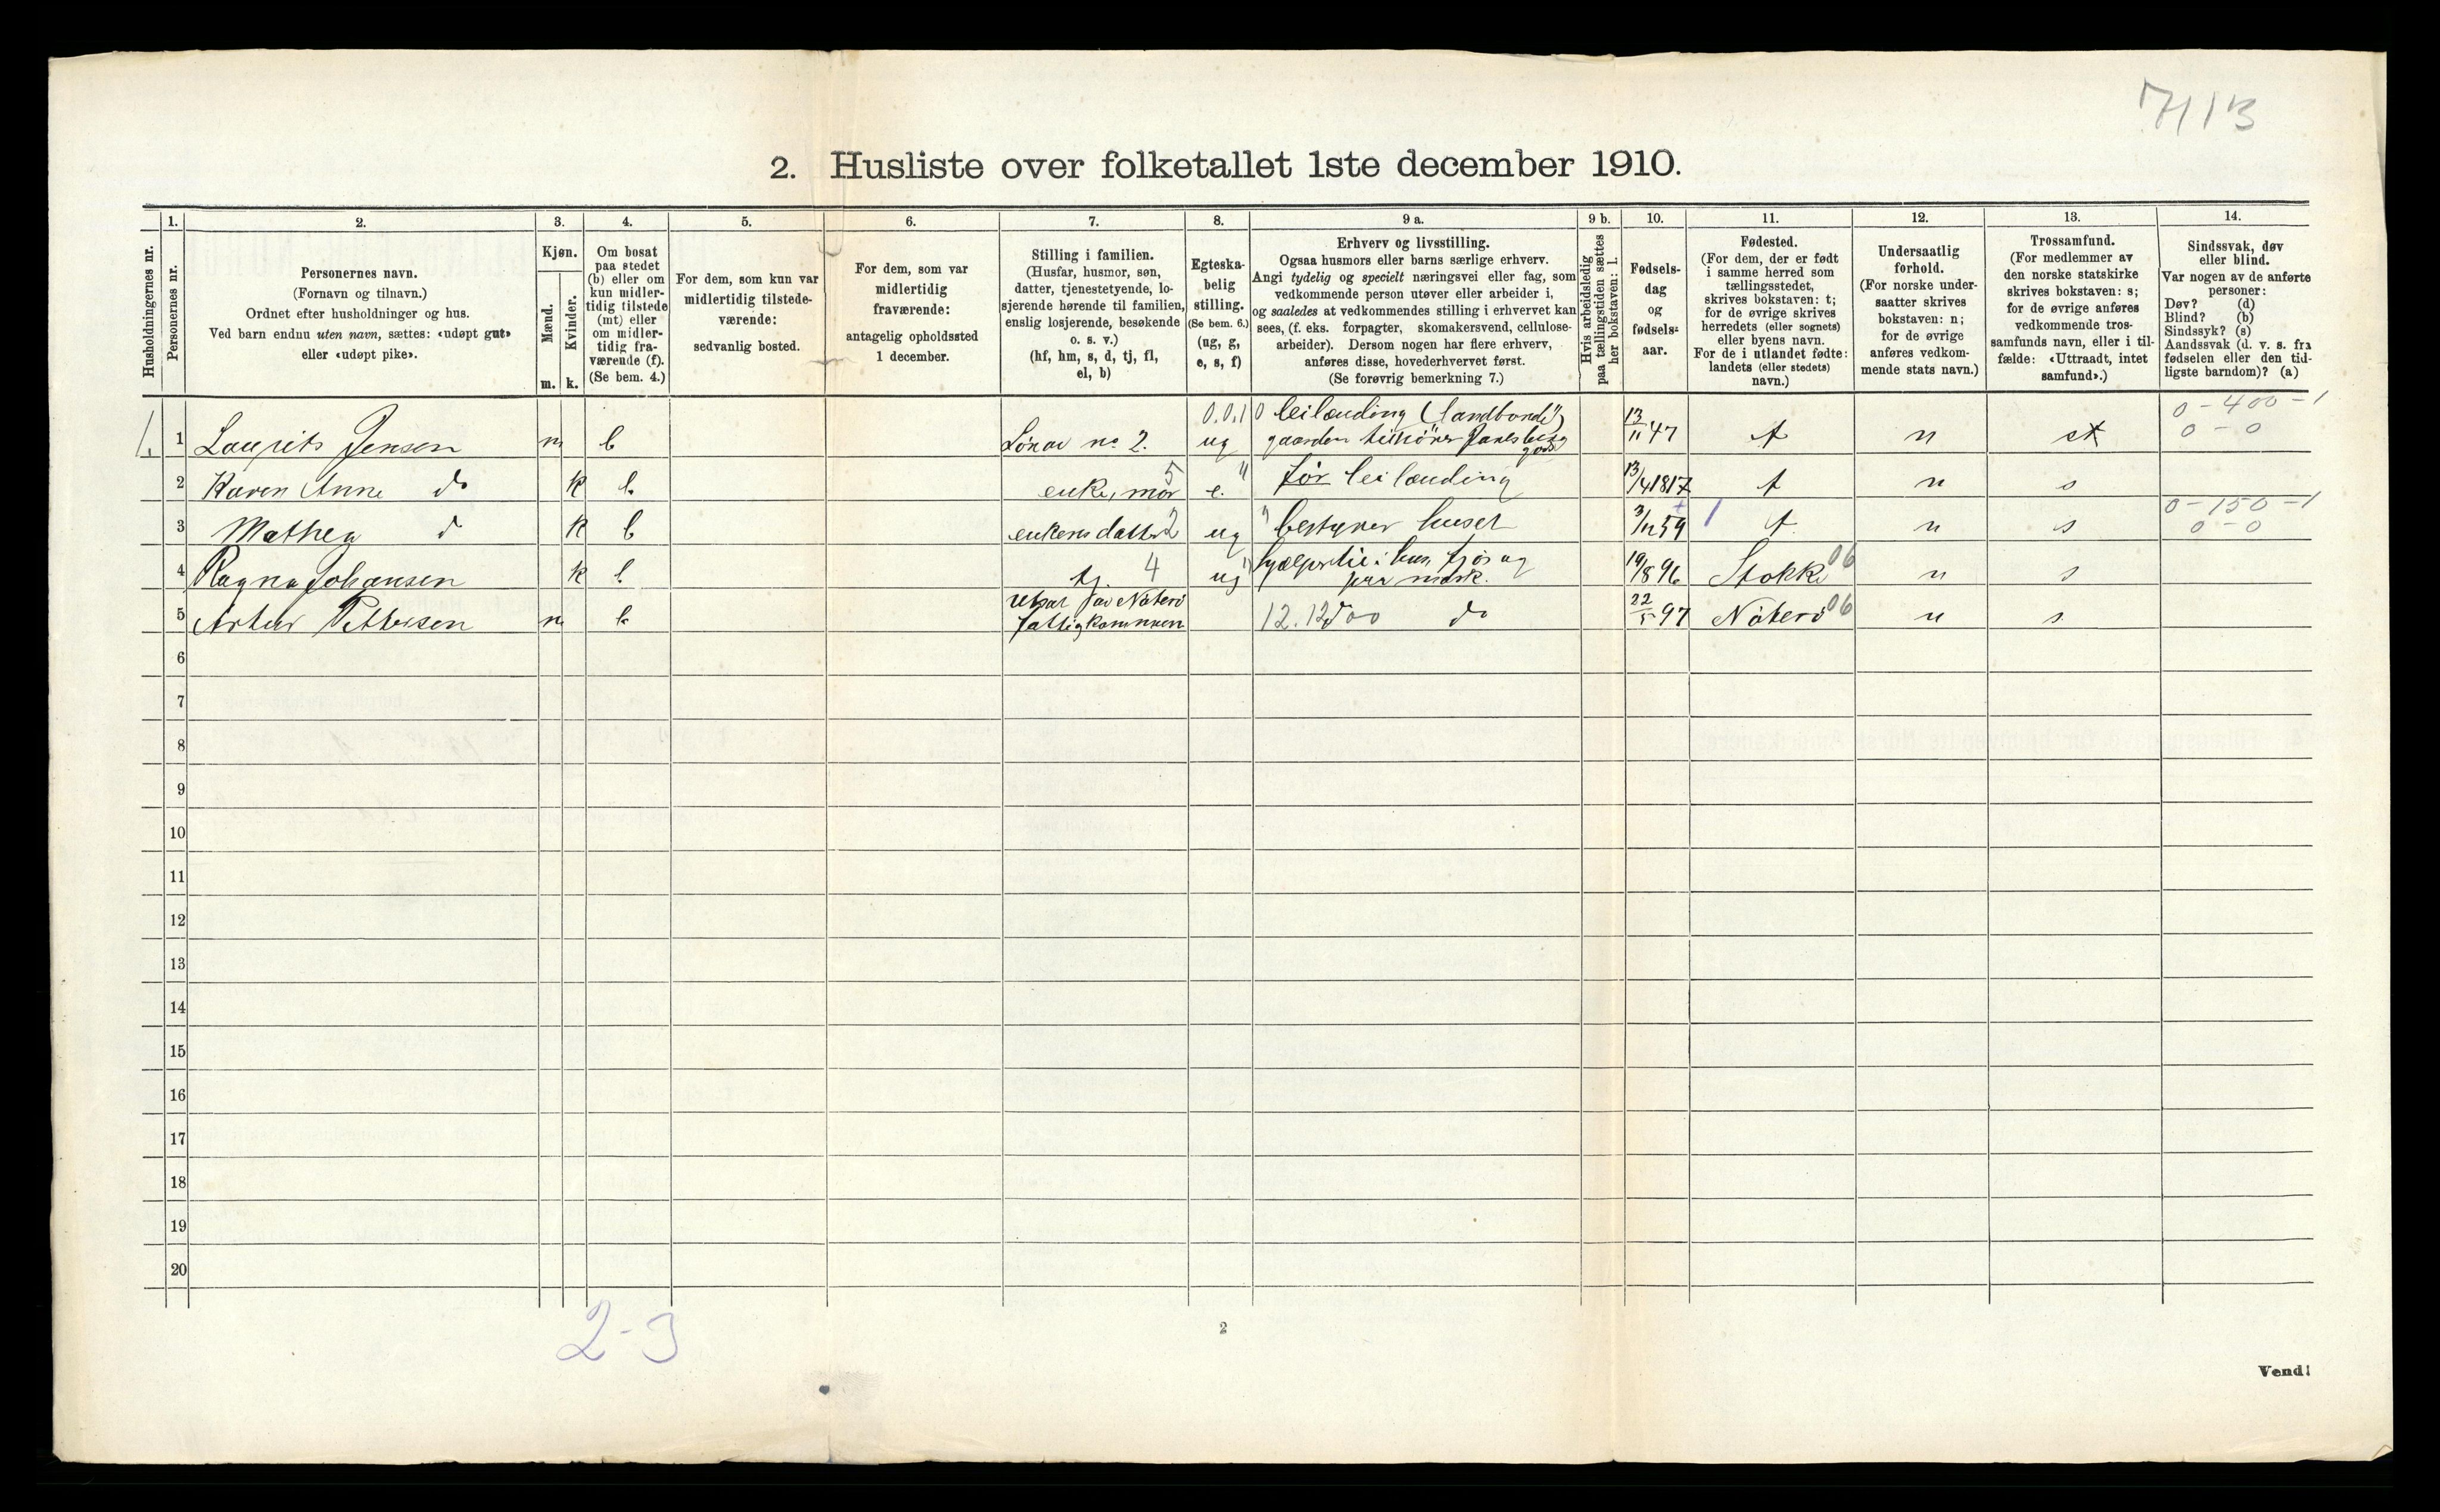 7113
2. Husliste over folketallet 1ste december 1910.
Husholdningernes nr.
1.
Personernes nr.
2.
Personernes navn.
(Fornavn og tilnavn.)
Ordnet efter husholdninger og hus.
Ved barn endnu uten navn, sættes: «udøpt gut»
eller «udøpt pike».
3.
Kjøn.
Mænd.
Kvinder.
m. k.
4.
Om bosat
paa stedet
(b) eller om
kun midler-
tidig tilstede
(mt) eller
om midler-
tidig fra-
værende (f).
(Se bem. 4.)
5.
For dem, som kun var
midlertidig tilstede-
værende:
sedvanlig bosted.
6.
For dem, som var
midlertidig
fraværende:
antagelig opholdssted
1 december.
7.
Stilling i familien.
(Husfar, husmor, søn,
datter, tjenestetyende, lo-
sjerende hørende til familien,
enslig losjerende, besøkende
o. s. v.)
(hf, hm, s, d, tj, fl,
el, b)
8.
Egteska-
belig
stilling.
(Se bem. 6.)
(ug, g,
e, s, f)
9 a.
Erhverv og livsstilling.
Ogsaa husmors eller barns særlige erhverv.
Angi tydelig og specielt næringsvei eller fag, som
vedkommende person utøver eller arbeider i,
og saaledes at vedkommendes stilling i erhvervet kan
sees, (f. eks. forpagter, skomakersvend, cellulose-
arbeider). Dersom nogen har flere erhverv,
anføres disse, hovederhvervet først.
(Se forøvrig bemerkning 7.)
9 b.
Hvis arbeidsledig
paa tællingstiden sættes
her bokstaven: l.
10.
Fødsels-
dag
og
fødsels-
aar.
11.
Fødested.
(For dem, der er født
i samme herred som
tællingsstedet,
skrives bokstaven: t;
for de øvrige skrives
herredets (eller sognets)
eller byens navn.
For de i utlandet fødte:
landets (eller stedets)
navn.)
12.
Undersaatlig
forhold.
(For norske under-
saatter skrives
bokstaven: n;
for de øvrige
anføres vedkom-
mende stats navn.)
13.
Trossamfund.
(For medlemmer av
den norske statskirke
skrives bokstaven: s;
for de øvrige anføres
vedkommende tros-
samfunds navn, eller i til-
fælde: «Uttraadt, intet
samfund».)
14.
Sindssvak, døv
eller blind.
Var nogen av de anførte
personer:
Døv? (d)
Blind? (b)
Sindssyk? (s)
Aandssvak (d. v. s. fra
fødselen eller den tid-
ligste barndom)? (a)
0.0.1 0 leilænding (landbonde) 0-400-1
1. 1 Laurits Jensen m b no 2. ug gaarden tilhører Jarlsberg gods 13/11 47 t n st 0-0
2 Karen Anne do k b enke, mor 5 e. " før leilænding 13/4 1817 t n s
0-150-1
3 Mathea d k b enkens datter 2 ug " bestyrer huset 3/11 59 t n s 0-0
4 Ragna Johansen k b tj. 4 ug " i hus fjøs og paa mark. 19/8 96 Stokke 06 n s
av Nøterø
5 Artur Pettersen m b fattigkommun 12.12 do 00 do 22/5 97 Nøterø 06 n s
6
7
8
9
10
11
12
13
14
15
16
17
18
19
20
2-3
2
Vend!